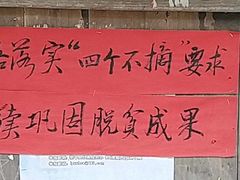 落实“四个不摘”要求
续巩固脱贫成果